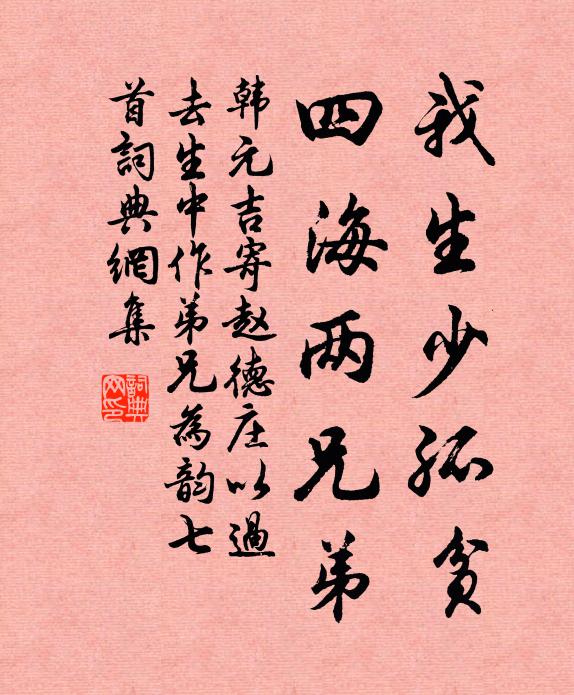 我生少孤貧
四海两兄弟
韩元吉寄赵德庄以過
去生中作弟兄為韵七
首詞典網集
詞典
网印